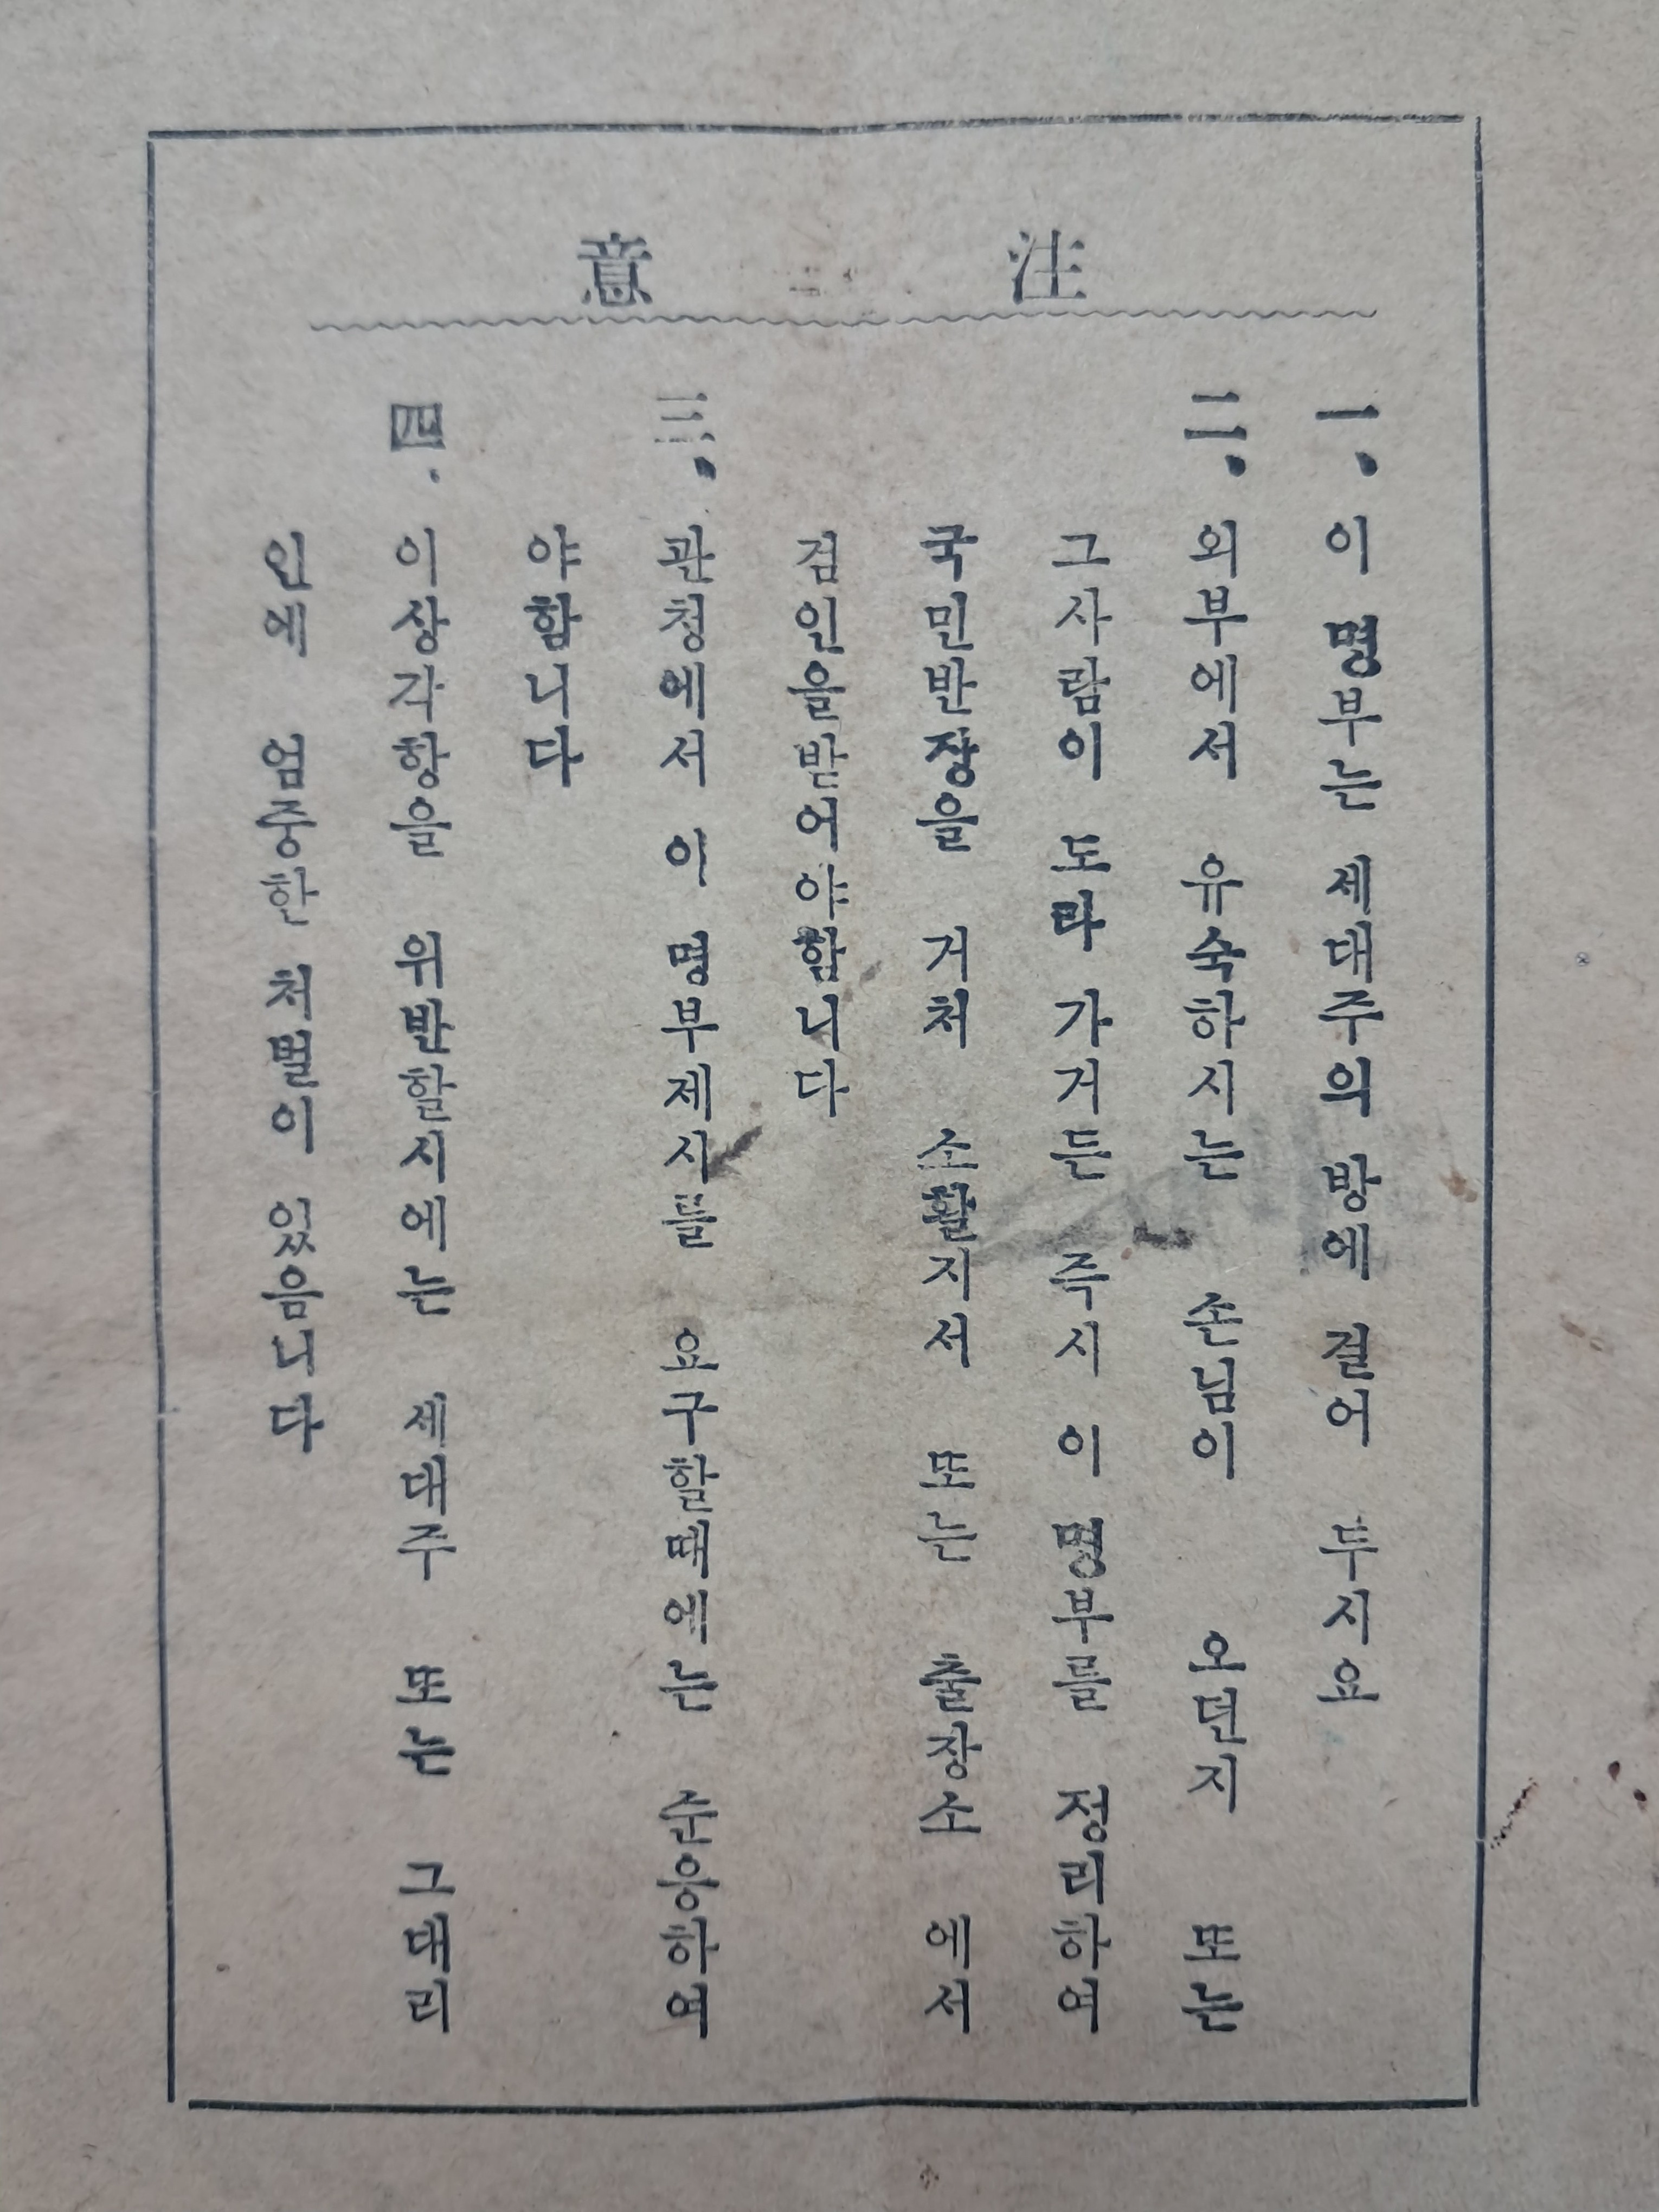 注意
一. 이 명부는 세대주의 방에 걸어 두시요
二. 외부에서 유숙하시는 손님이 오던지 또는
그사람이 도라 가거든 즉시 이 명부를 정리하여
국민반장을 거처 소할지서 또는 출장소 에서
검인을받어야합니다
三. 관청에서 이 명부제시를 요구할때에는 순응하여
야합니다
四. 이상각항을 위반할시에는 세대주 또는 그대리
인에 엄중한 처벌이 있음니다